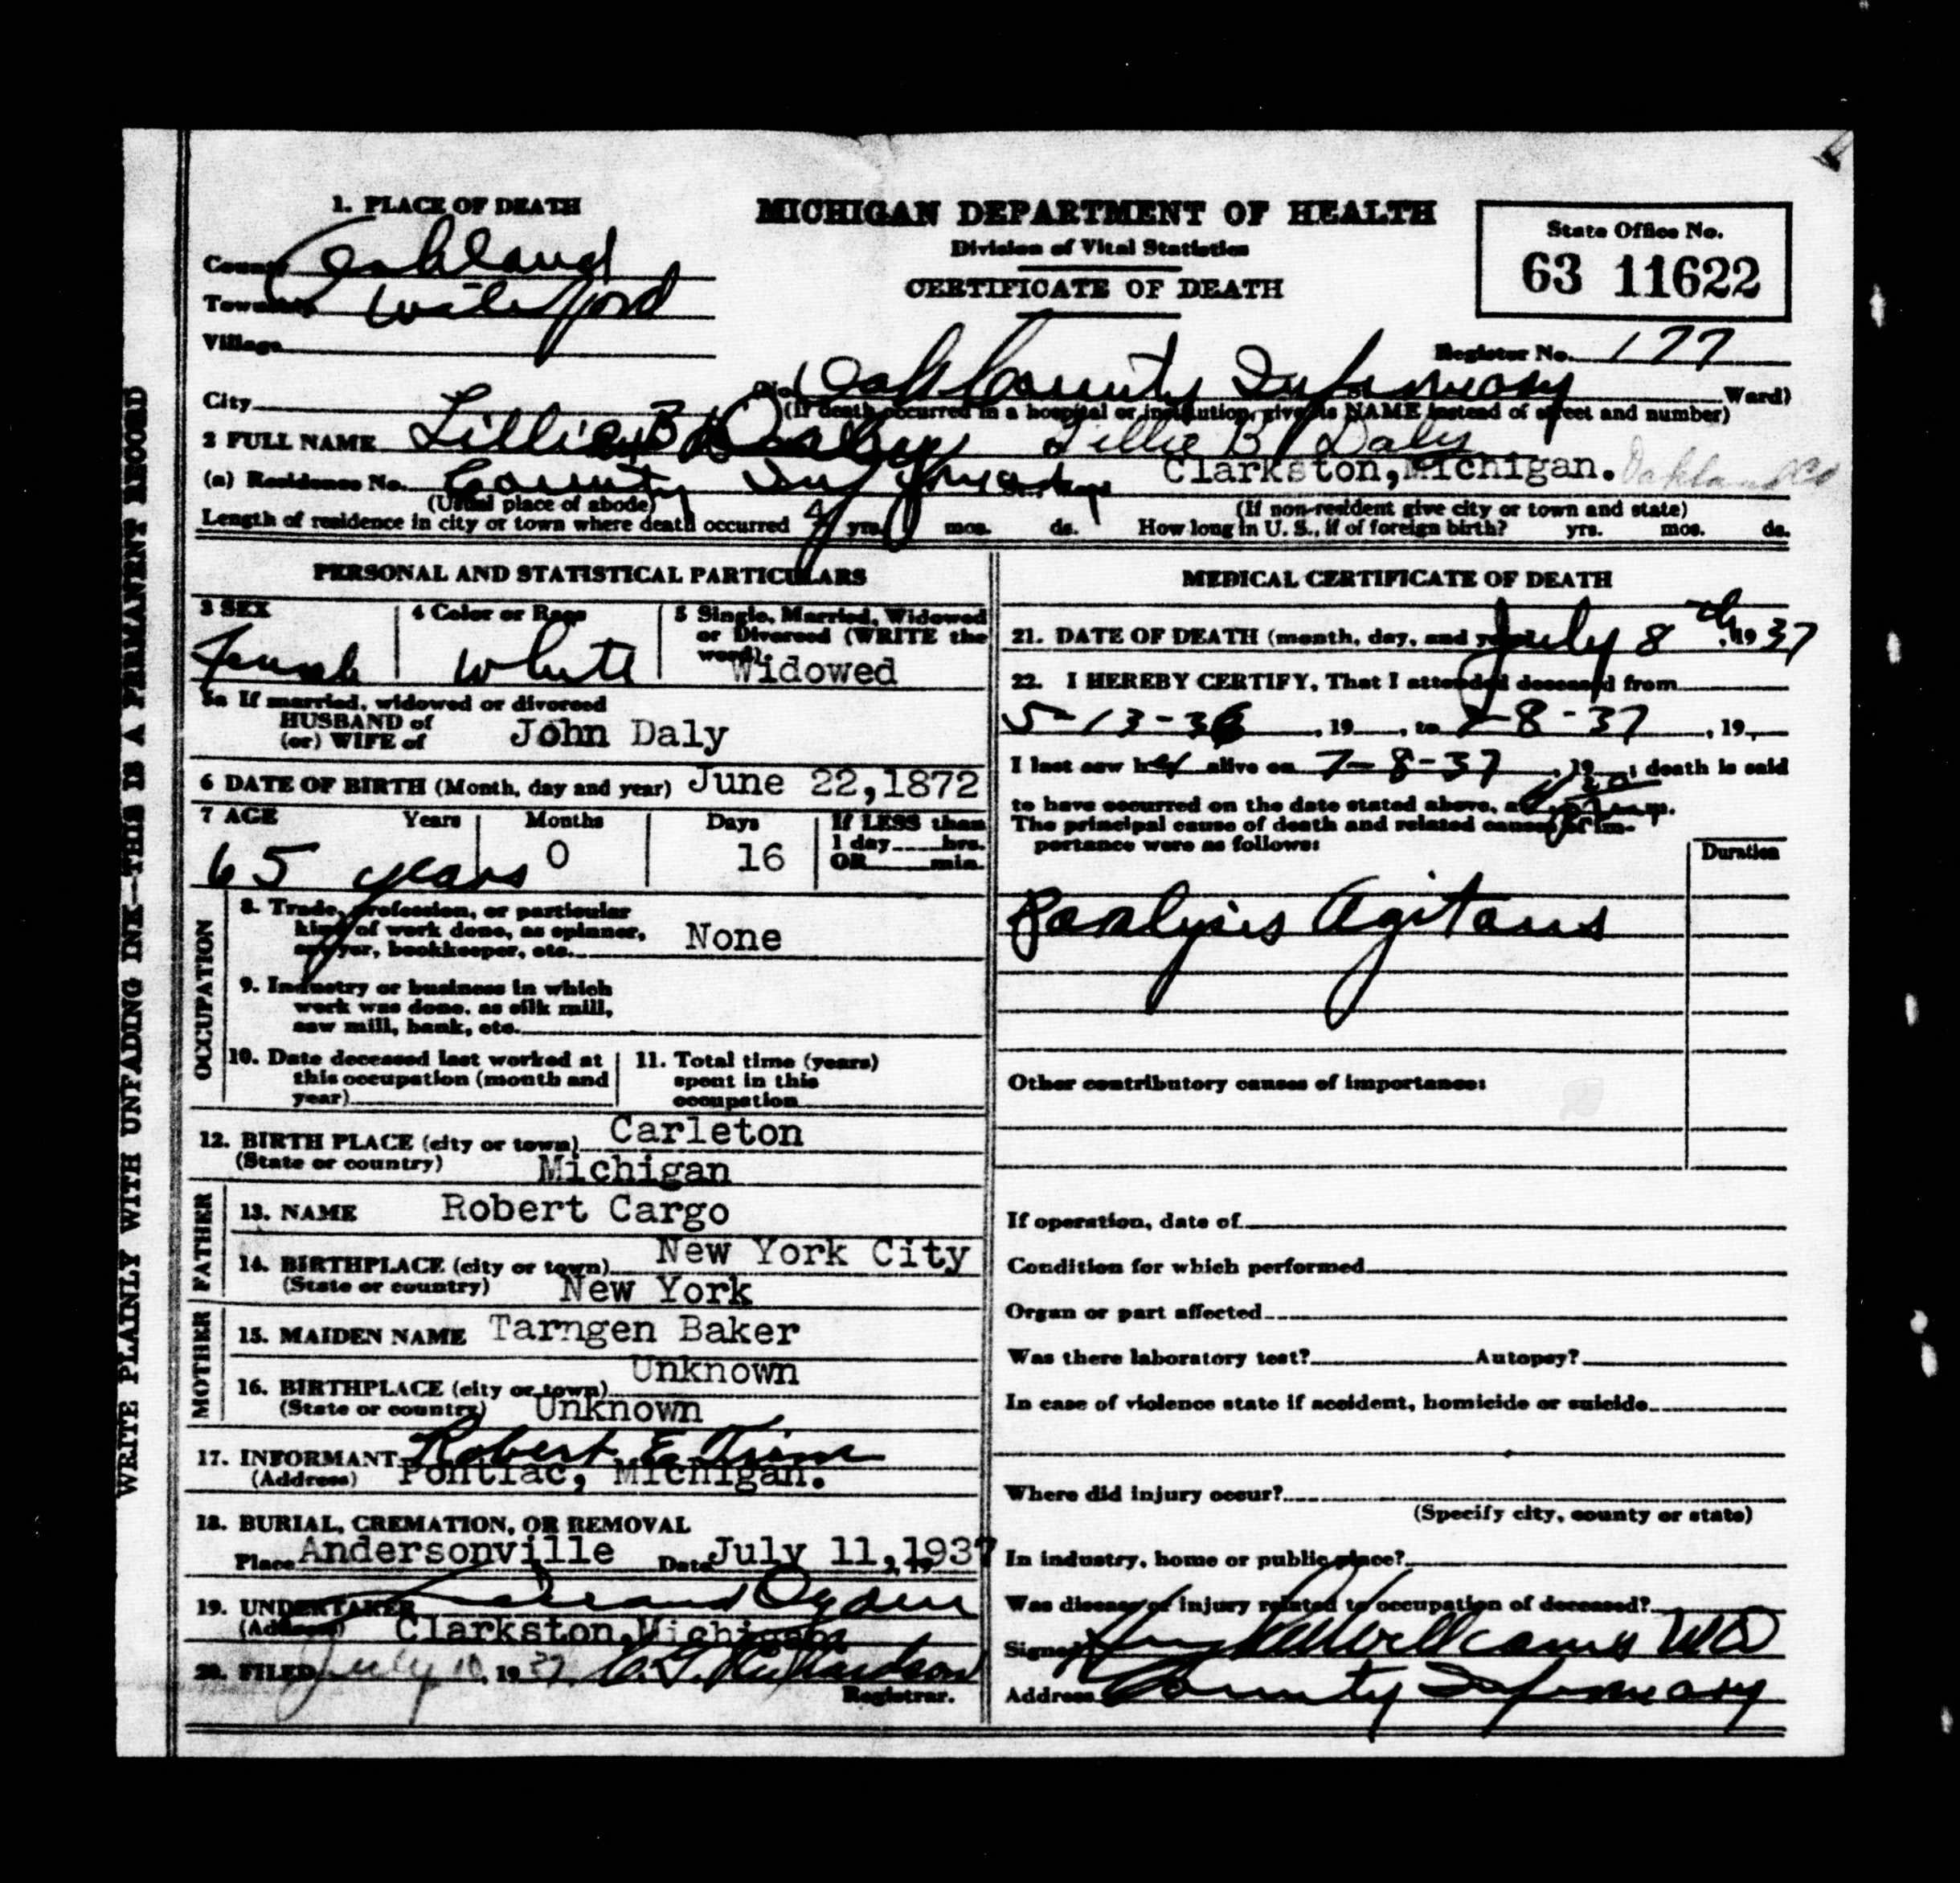 WRITE PLAINLY WITH UNFADING INK—THIS IS A PERMANENT RECORD
1. PLACE OF DEATH
County Oakland
Township Waterford
Village
City
MICHIGAN DEPARTMENT OF HEALTH
Division of Vital Statistics
CERTIFICATE OF DEATH
State Office No.
63 11622
Register No. 177
(No. Oak County Infirmary Ward)
(If death occurred in a hospital or institution, give its NAME instead of street and number)
2 FULL NAME Lillie B Daly Lillie B Daly
(a) Residence No. County Infirmary Clarkston, Michigan. Oakland Co
(Usual place of abode) (If non-resident give city or town and state)
Length of residence in city or town where death occurred 4 yrs. mos. ds. How long in U. S., if of foreign birth? yrs. mos. ds.
PERSONAL AND STATISTICAL PARTICULARS
3 SEX
Female
4 Color or Race
White
5 Single, Married, Widowed
or Divorced (WRITE the
word).
Widowed
5a If married, widowed or divorced
HUSBAND of
(or) WIFE of John Daly
6 DATE OF BIRTH (Month, day and year) June 22, 1872
7 AGE Years Months Days If LESS than
1 day hrs.
OR min.
65 years 0 16
OCCUPATION
8. Trade, profession, or particular
kind of work done, as spinner,
sawyer, bookkeeper, etc. None
9. Industry or business in which
work was done, as silk mill,
saw mill, bank, etc.
10. Date deceased last worked at
this occupation (month and
year)
11. Total time (years)
spent in this
occupation
12. BIRTH PLACE (city or town) Carleton
(State or country) Michigan
FATHER
13. NAME Robert Cargo
14. BIRTHPLACE (city or town) New York City
(State or country) New York
MOTHER
15. MAIDEN NAME Tarngen Baker
16. BIRTHPLACE (city or town) Unknown
(State or country) Unknown
17. INFORMANT Robert E.
(Address) Pontiac, Michigan.
18. BURIAL, CREMATION, OR REMOVAL
Place Andersonville Date July 11, 1937
19. UNDERTAKER Ogden
(Address) Clarkston, Michigan
20. FILED July 10, 1937 Richardson
Registrar.
MEDICAL CERTIFICATE OF DEATH
21. DATE OF DEATH (month, day, and year) July 8th, 1937
22. I HEREBY CERTIFY, That I attended deceased from
5-13-36, 19, to 7-8-37, 19
I last saw her alive on 7-8-37, 19; death is said
to have occurred on the date stated above, at m.
The principal cause of death and related causes of im-
portance were as follows:
Duration
Paralysis Agitans
Other contributory causes of importance:
If operation, date of
Condition for which performed
Organ or part affected
Was there laboratory test? Autopsy?
In case of violence state if accident, homicide or suicide
Where did injury occur?
(Specify city, county or state)
In industry, home or public place?
Was disease or injury related to occupation of deceased?
Signed Williams MD
Address County Infirmary